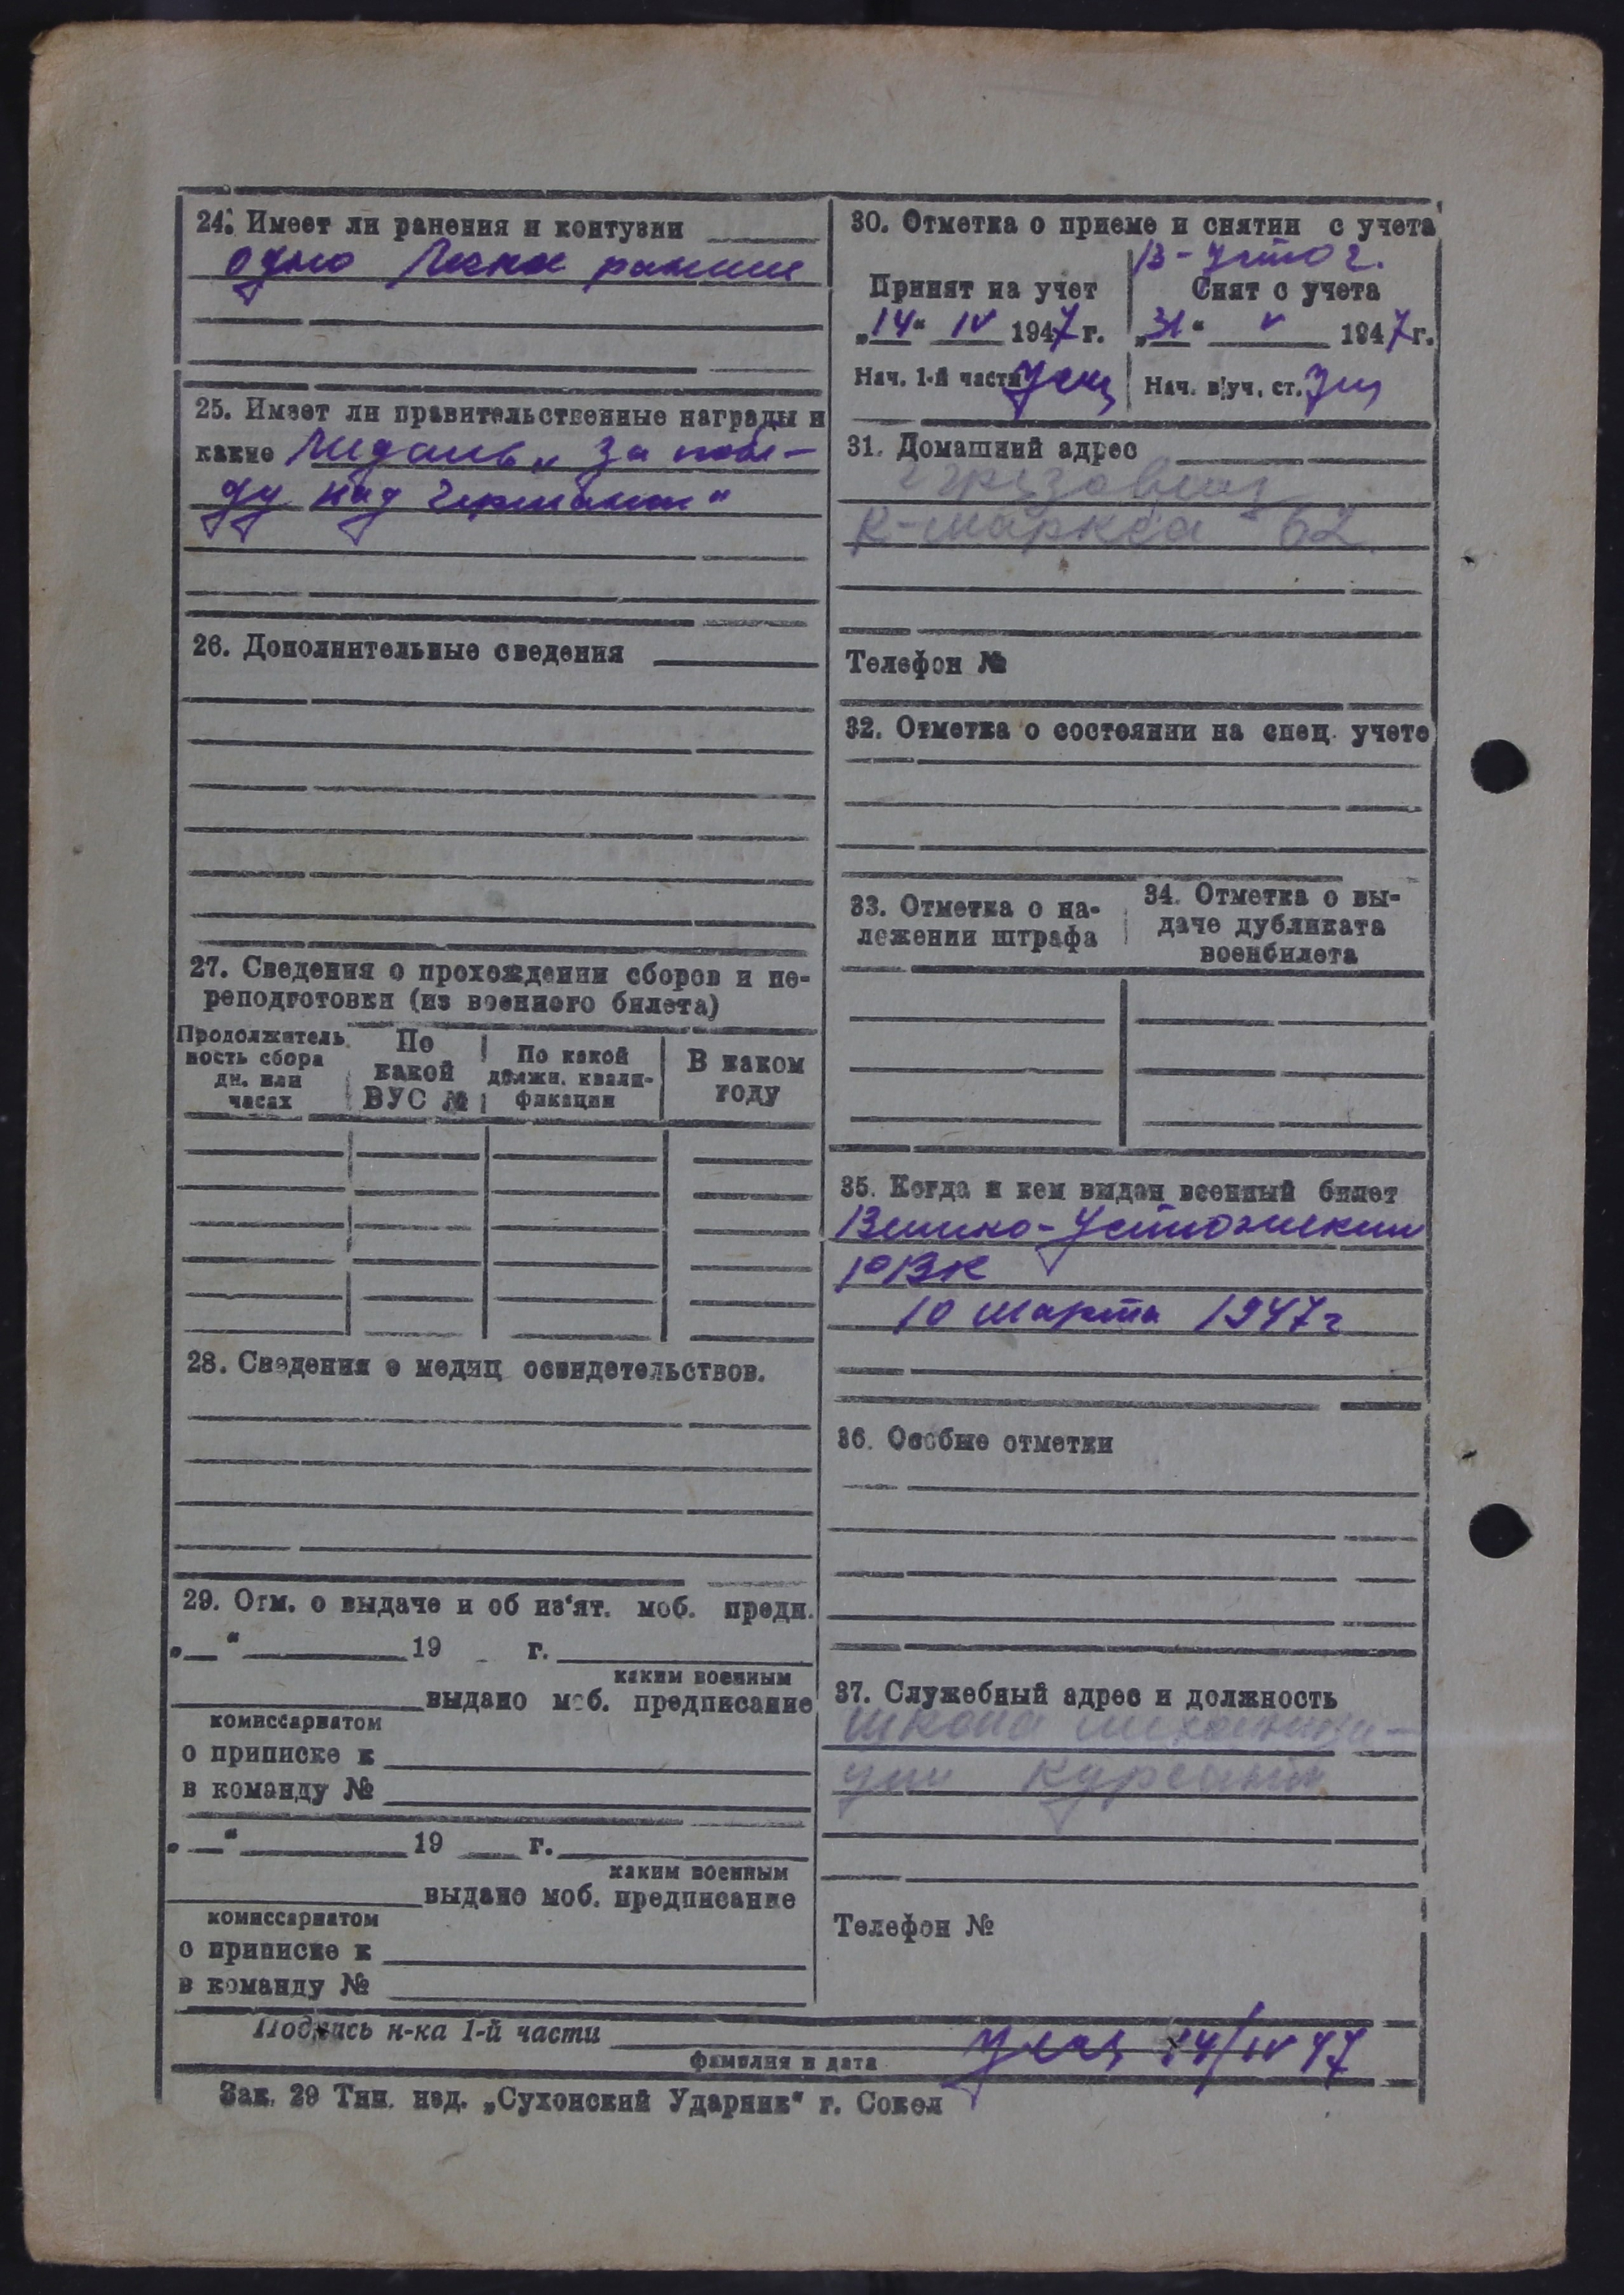 24. Имеет ли ранения и контузии
одно легкое ранение
25. Имеет ли правительственные награды и
какие Медаль „За побе-
ду над Германией“
26. Дополнительные сведения
27. Сведения о прохождении сборов и пе-
реподготовки (из военного билета)
Продолжитель
ность сбора
дн. или
часах
По
какой
ВУС №
По какой
должн. квали-
фикации
В каком
году
28. Сведения о медиц освидетельствов.
29. Отм. о выдаче и об из'ят. моб. предп.
„ “ 19 г.
каким военным
выдано моб. предписание
комиссариатом
о приписке к
в команду №
„ “ 19 г.
каким военным
выдано моб. предписание
комиссариатом
о приписке к
в команду №
30. Отметка о приеме и снятии с учета
В-Устюг.
Принят на учет
Снят с учета
„14“ IV 1947 г.
„31“ V 1947 г.
Нач. 1-й части
Нач. в/уч. ст.
31. Домашний адрес
К-Маркса 62
Телефон №
32. Отметка о состоянии на спец. учете
33. Отметка о на-
ложении штрафа
34. Отметка о вы-
даче дубликата
военбилета
35. Когда и кем выдан военный билет
Велико-Устюжским
РВК
10 марта 1947 г
36. Особые отметки
37. Служебный адрес и должность
школа механиза-
ции курсант
Телефон №
Подпись н-ка 1-й части
14/IV 47
фамилия и дата
Зак. 29 Тип. изд. „Сухонский Ударник“ г. Сокол